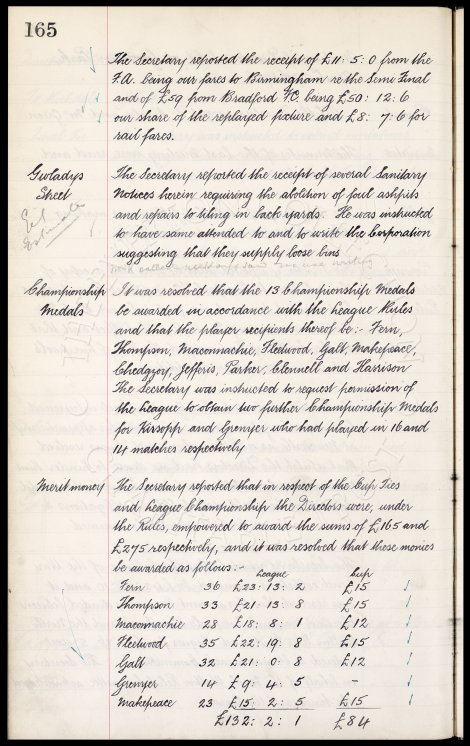 165
The Secretary reported the receipt of £11: 5: 0 from the
F.A. being our fares to Birmingham re the Semi Final
and of £59 from Bradford F.C. being £50: 12: 6
our share of the replayed fixture and £8: 7: 6 for
rail fares.
Gwladys Street
The Secretary reported the receipt of several Sanitary
Notices herein requiring the abolition of foul ashpits
and repairs to tiling in back yards. He was instructed
to have same attended to and to write the Corporation
suggesting that they supply loose bins
Championship Medals
It was resolved that the 13 Championship Medals
be awarded in accordance with the League Rules
and that the player recipients thereof be:- Fern,
Thompson, Maconnachie, Fleetwood, Galt, Makepeace,
Chedgzoy, Jefferis, Parker, Clennell and Harrison
The Secretary was instructed to request permission of
the League to obtain two further Championship Medals
for Kirsopp and Grenyer who had played in 16 and
14 matches respectively
Merit money
The Secretary reported that in respect of the Cup Ties
and League Championship the Directors were, under
the Rules, empowered to award the sums of £165 and
£275 respectively, and it was resolved that these monies
be awarded as follows:-
League Cup
Fern 36 £23: 13: 2 £15
Thompson 33 £21 13 8 £15
Maconnachie 28 £18: 8: 1 £12
Fleetwood 35 £22: 19: 8 £15
Galt 32 £21: 0: 8 £12
Grenyer 14 £9: 4: 5 -
Makepeace 23 £15: 2: 5 £15
£132: 2: 1 £84